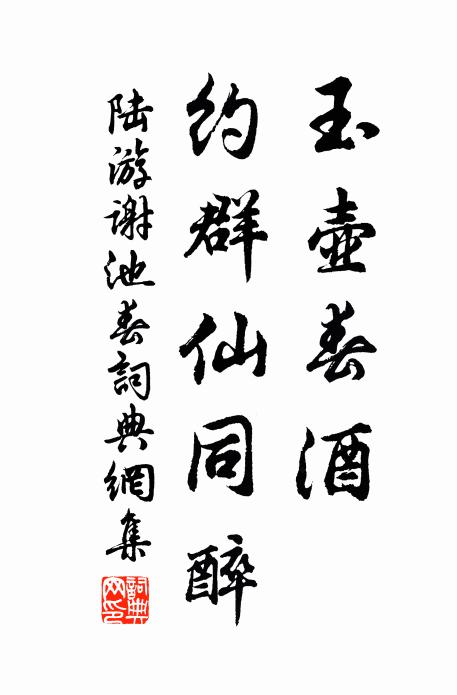 玉壺春酒
約群仙同醉
陸游謝池春詞典網集
詞典網印